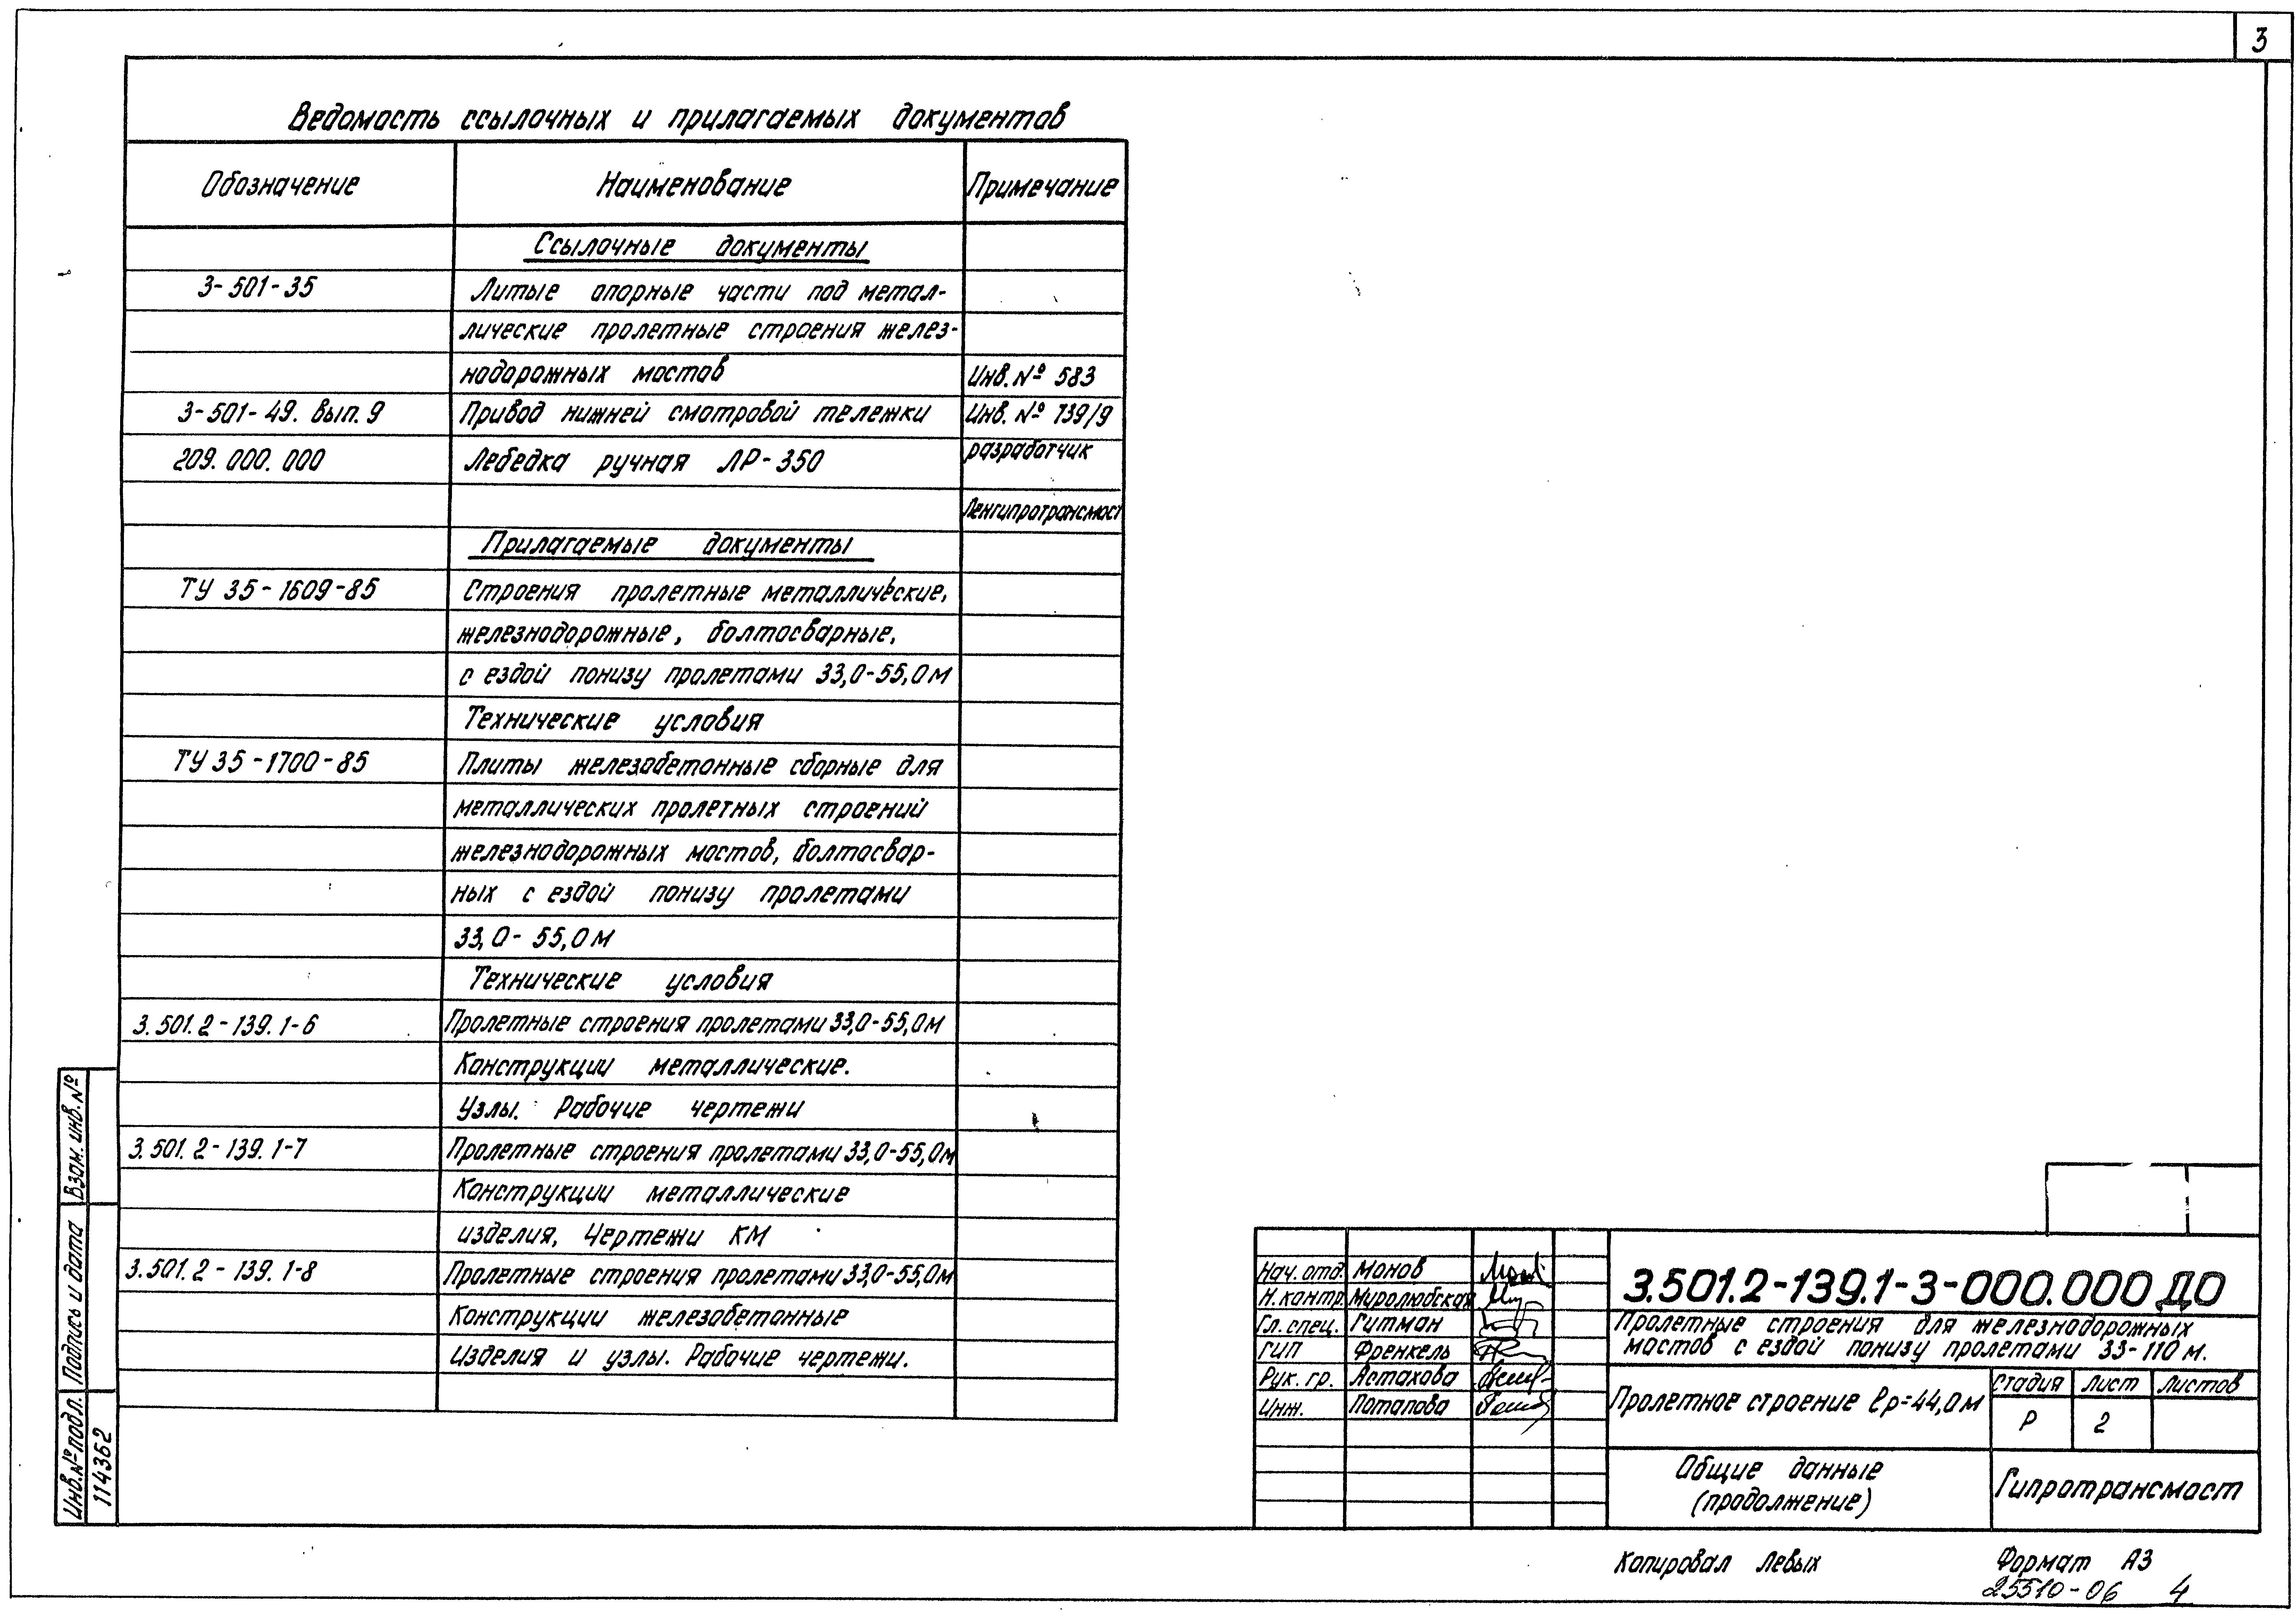 3
Ведомость ссылочных и прилагаемых документов
Обозначение Наименование Примечание
Ссылочные документы
3-501-35 Литые опорные части под метал-
лические пролетные строения желез-
нодорожных мостов Инв. № 583
3-501-49. вып. 9 Привод нижней смотровой тележки Инв. № 739/9
209.000.000 Лебедка ручная ЛР-350 разработчик
Ленгипротрансмост
Прилагаемые документы
ТУ 35-1609-85 Строения пролетные металлические,
железнодорожные, болтосварные,
с ездой понизу пролетами 33,0-55,0м
Технические условия
ТУ 35-1700-85 Плиты железобетонные сборные для
металлических пролетных строений
железнодорожных мостов, болтосвар-
ных с ездой понизу пролетами
33,0-55,0м
Технические условия
3.501.2-139.1-6 Пролетные строения пролетами 33,0-55,0м
Конструкции металлические.
Узлы. Рабочие чертежи
3.501.2-139.1-7 Пролетные строения пролетами 33,0-55,0м
Конструкции металлические
изделия, Чертежи КМ
3.501.2-139.1-8 Пролетные строения пролетами 33,0-55,0м
Конструкции железобетонные
Изделия и узлы. Рабочие чертежи.
Взам. инв. №
Подпись и дата
Инв. № подл.
114362
Нач. отд. Монов
Н. контр. Миролюбская
Гл. спец. Гитман
ГИП Френкель
Рук. гр. Астахова
Инж. Потапова
3.501.2-139.1-3-000.000 ДО
Пролетные строения для железнодорожных
мостов с ездой понизу пролетами 33-110 м.
Пролетное строение lр=44,0м
Стадия Лист Листов
Р 2
Общие данные
(продолжение)
Гипротрансмост
Копировал Левых Формат А3
25510-06 4